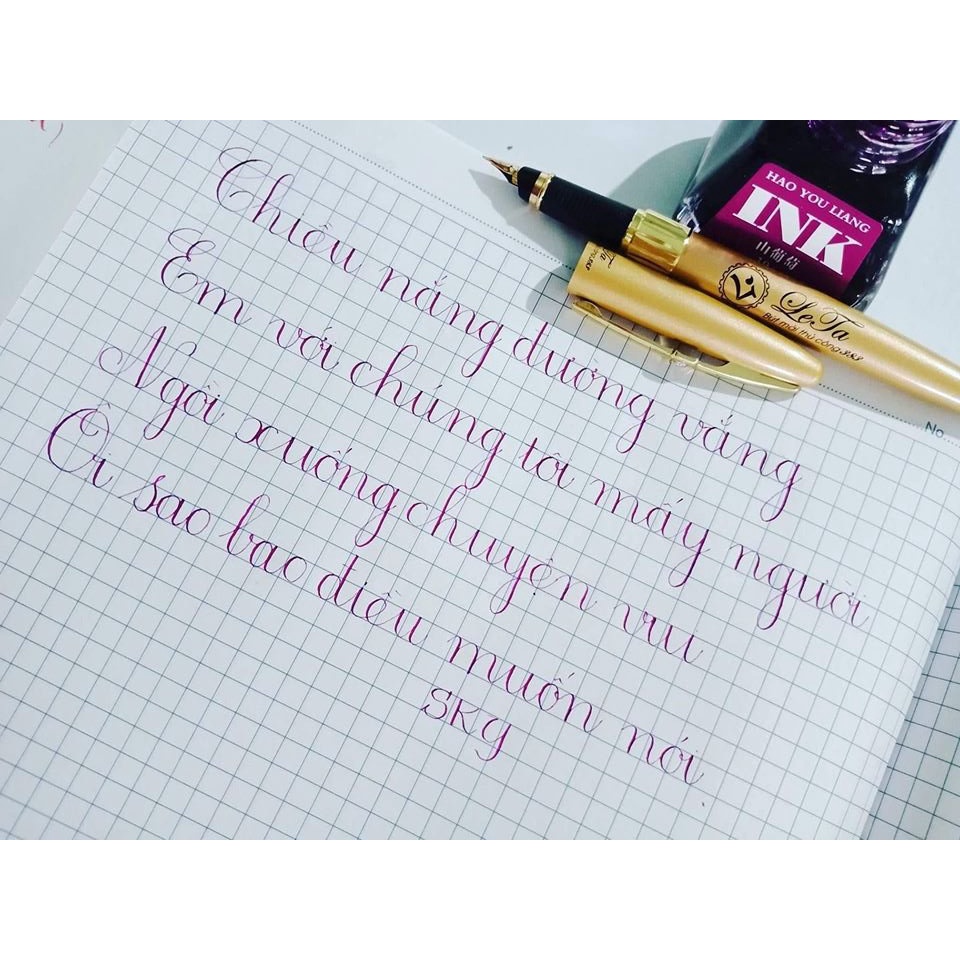 Chiều nắng dường vắng
Em với chúng tôi mấy người
Ngồi xuống chuyện vu
Ôi sao bao điều muốn nói
SKY
HAO YOU LIANG
INK
山葡萄
LeTa
Bút mài thủ công SVS
No.